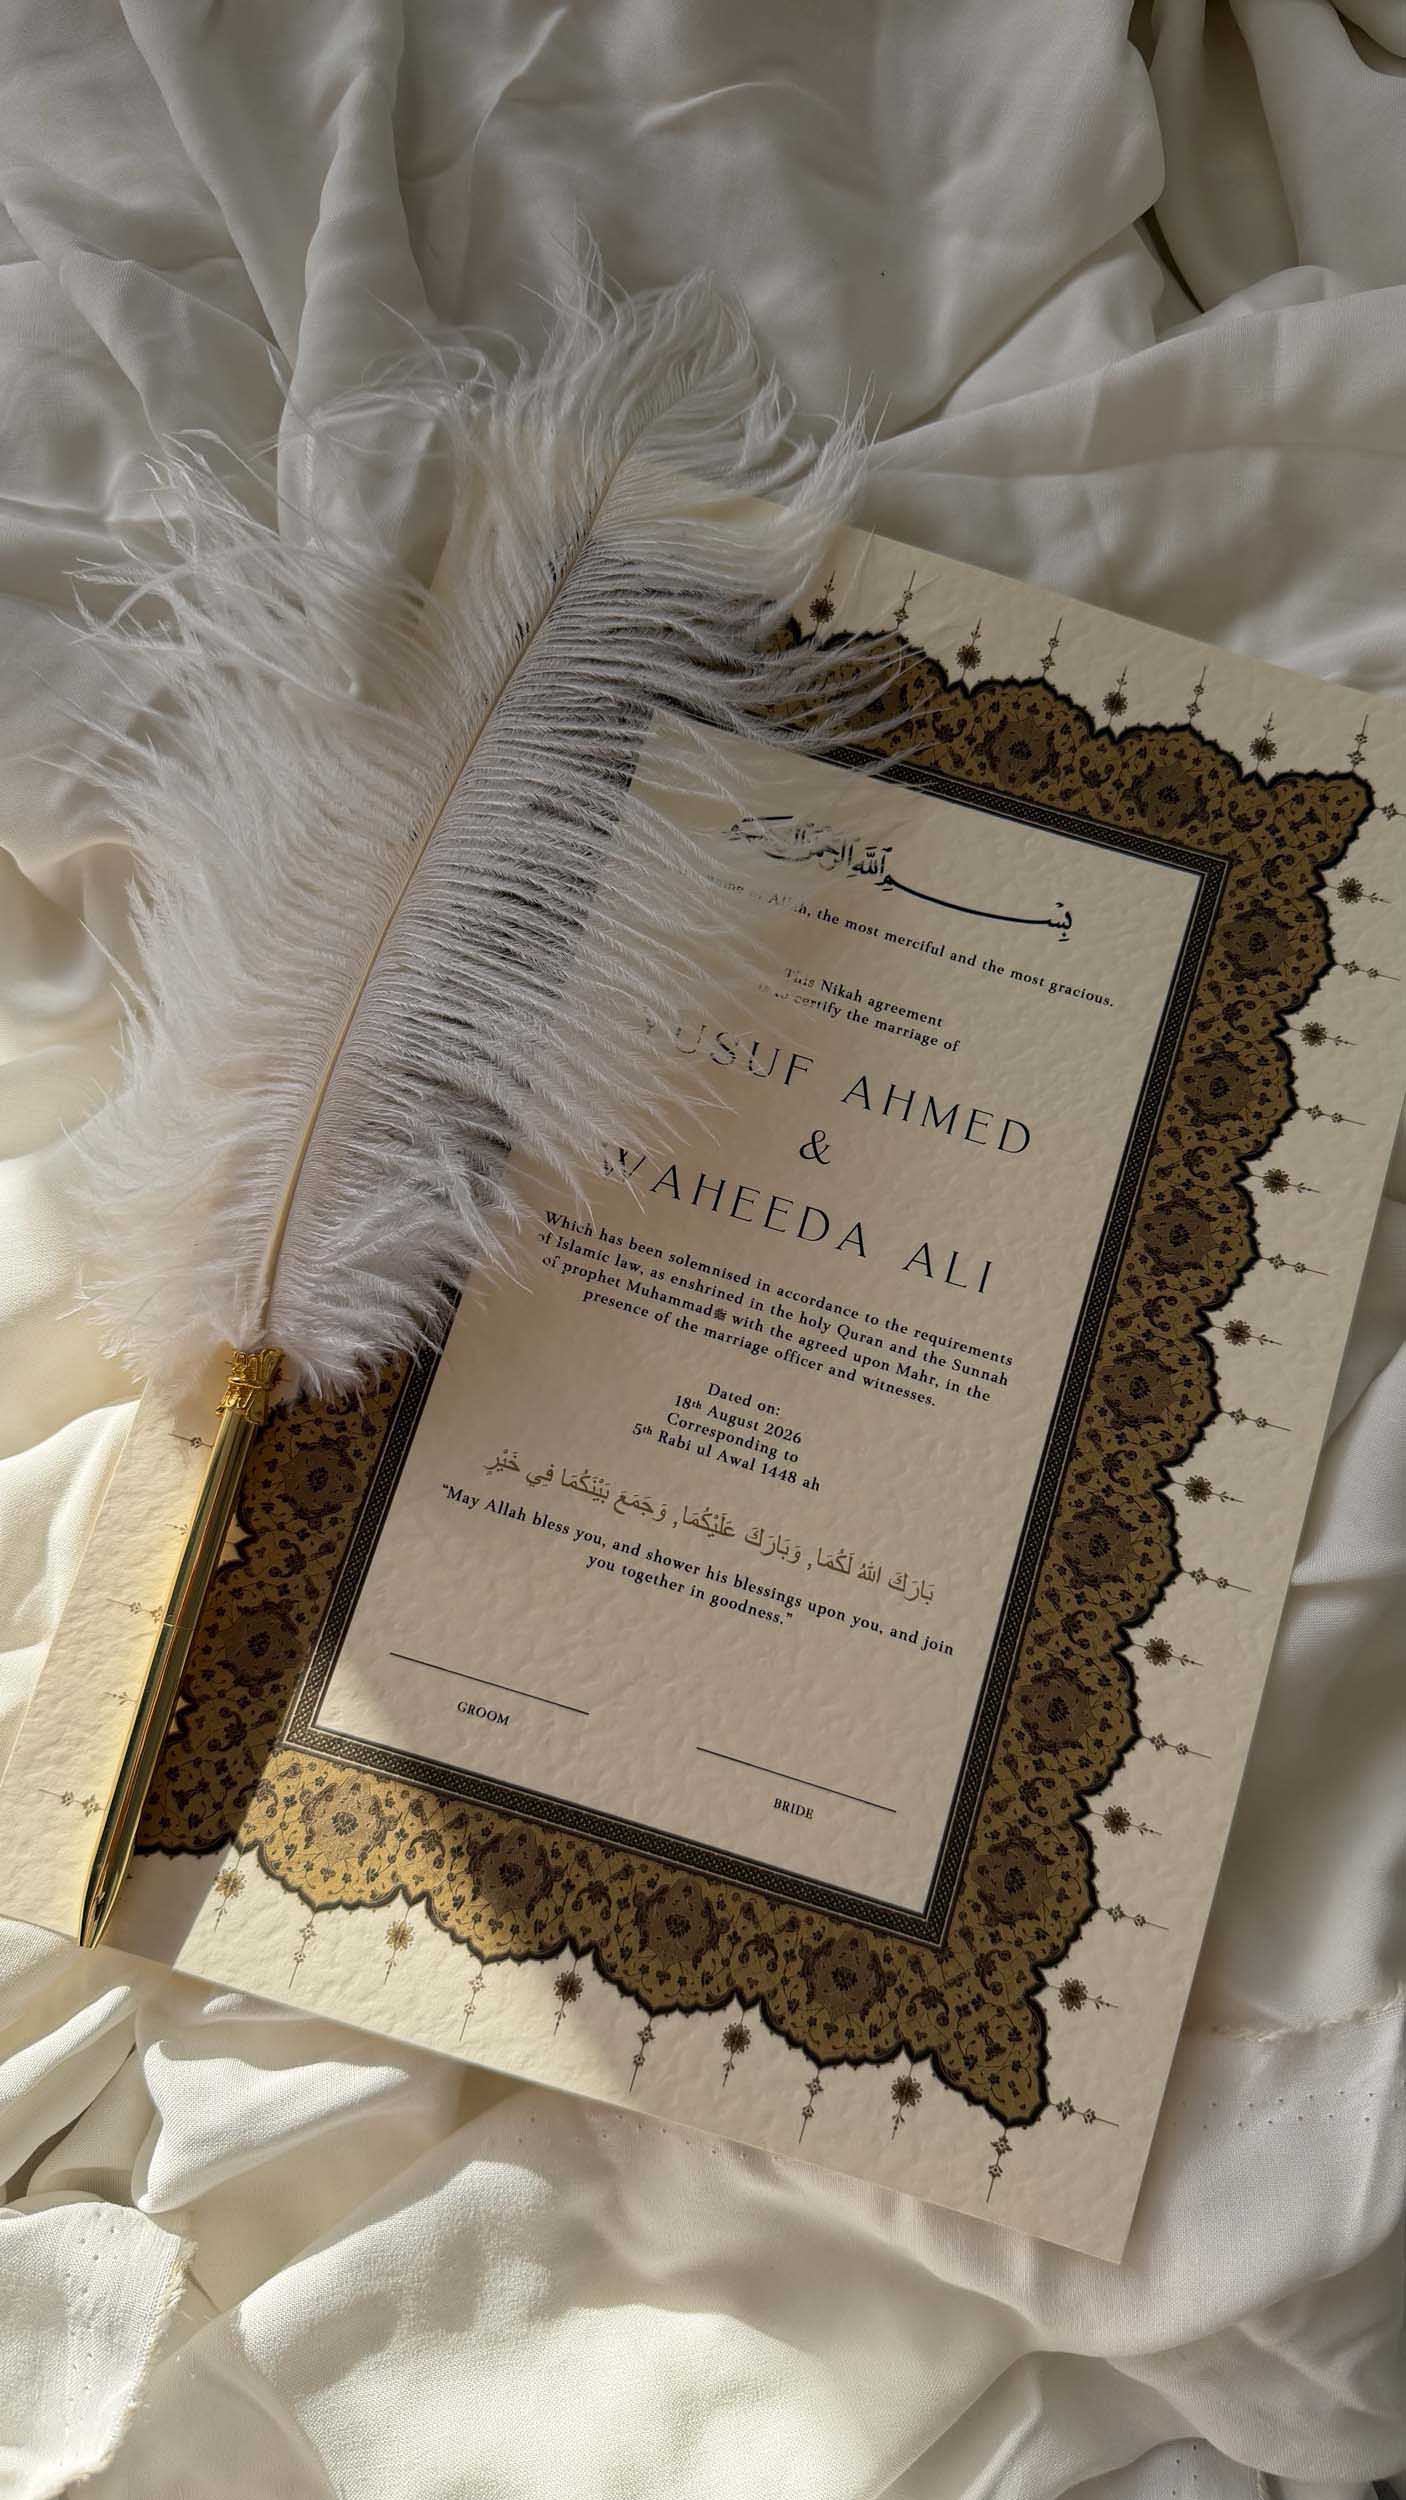 بِسْمِ اللَّهِ الرَّحْمَٰنِ الرَّحِيمِ
name of Allah, the most merciful and the most gracious.
This Nikah agreement
is to certify the marriage of
YUSUF AHMED
&
WAHEEDA ALI
Which has been solemnised in accordance to the requirements
of Islamic law, as enshrined in the holy Quran and the Sunnah
of prophet Muhammadﷺ with the agreed upon Mahr, in the
presence of the marriage officer and witnesses.
Dated on:
18th August 2026
Corresponding to
5th Rabi ul Awal 1448 ah
بَارَكَ اللهُ لَكُمَا, وَبَارَكَ عَلَيْكُمَا, وَجَمَعَ بَيْنَكُمَا فِي خَيْرٍ
“May Allah bless you, and shower his blessings upon you, and join
you together in goodness.”
GROOM
BRIDE